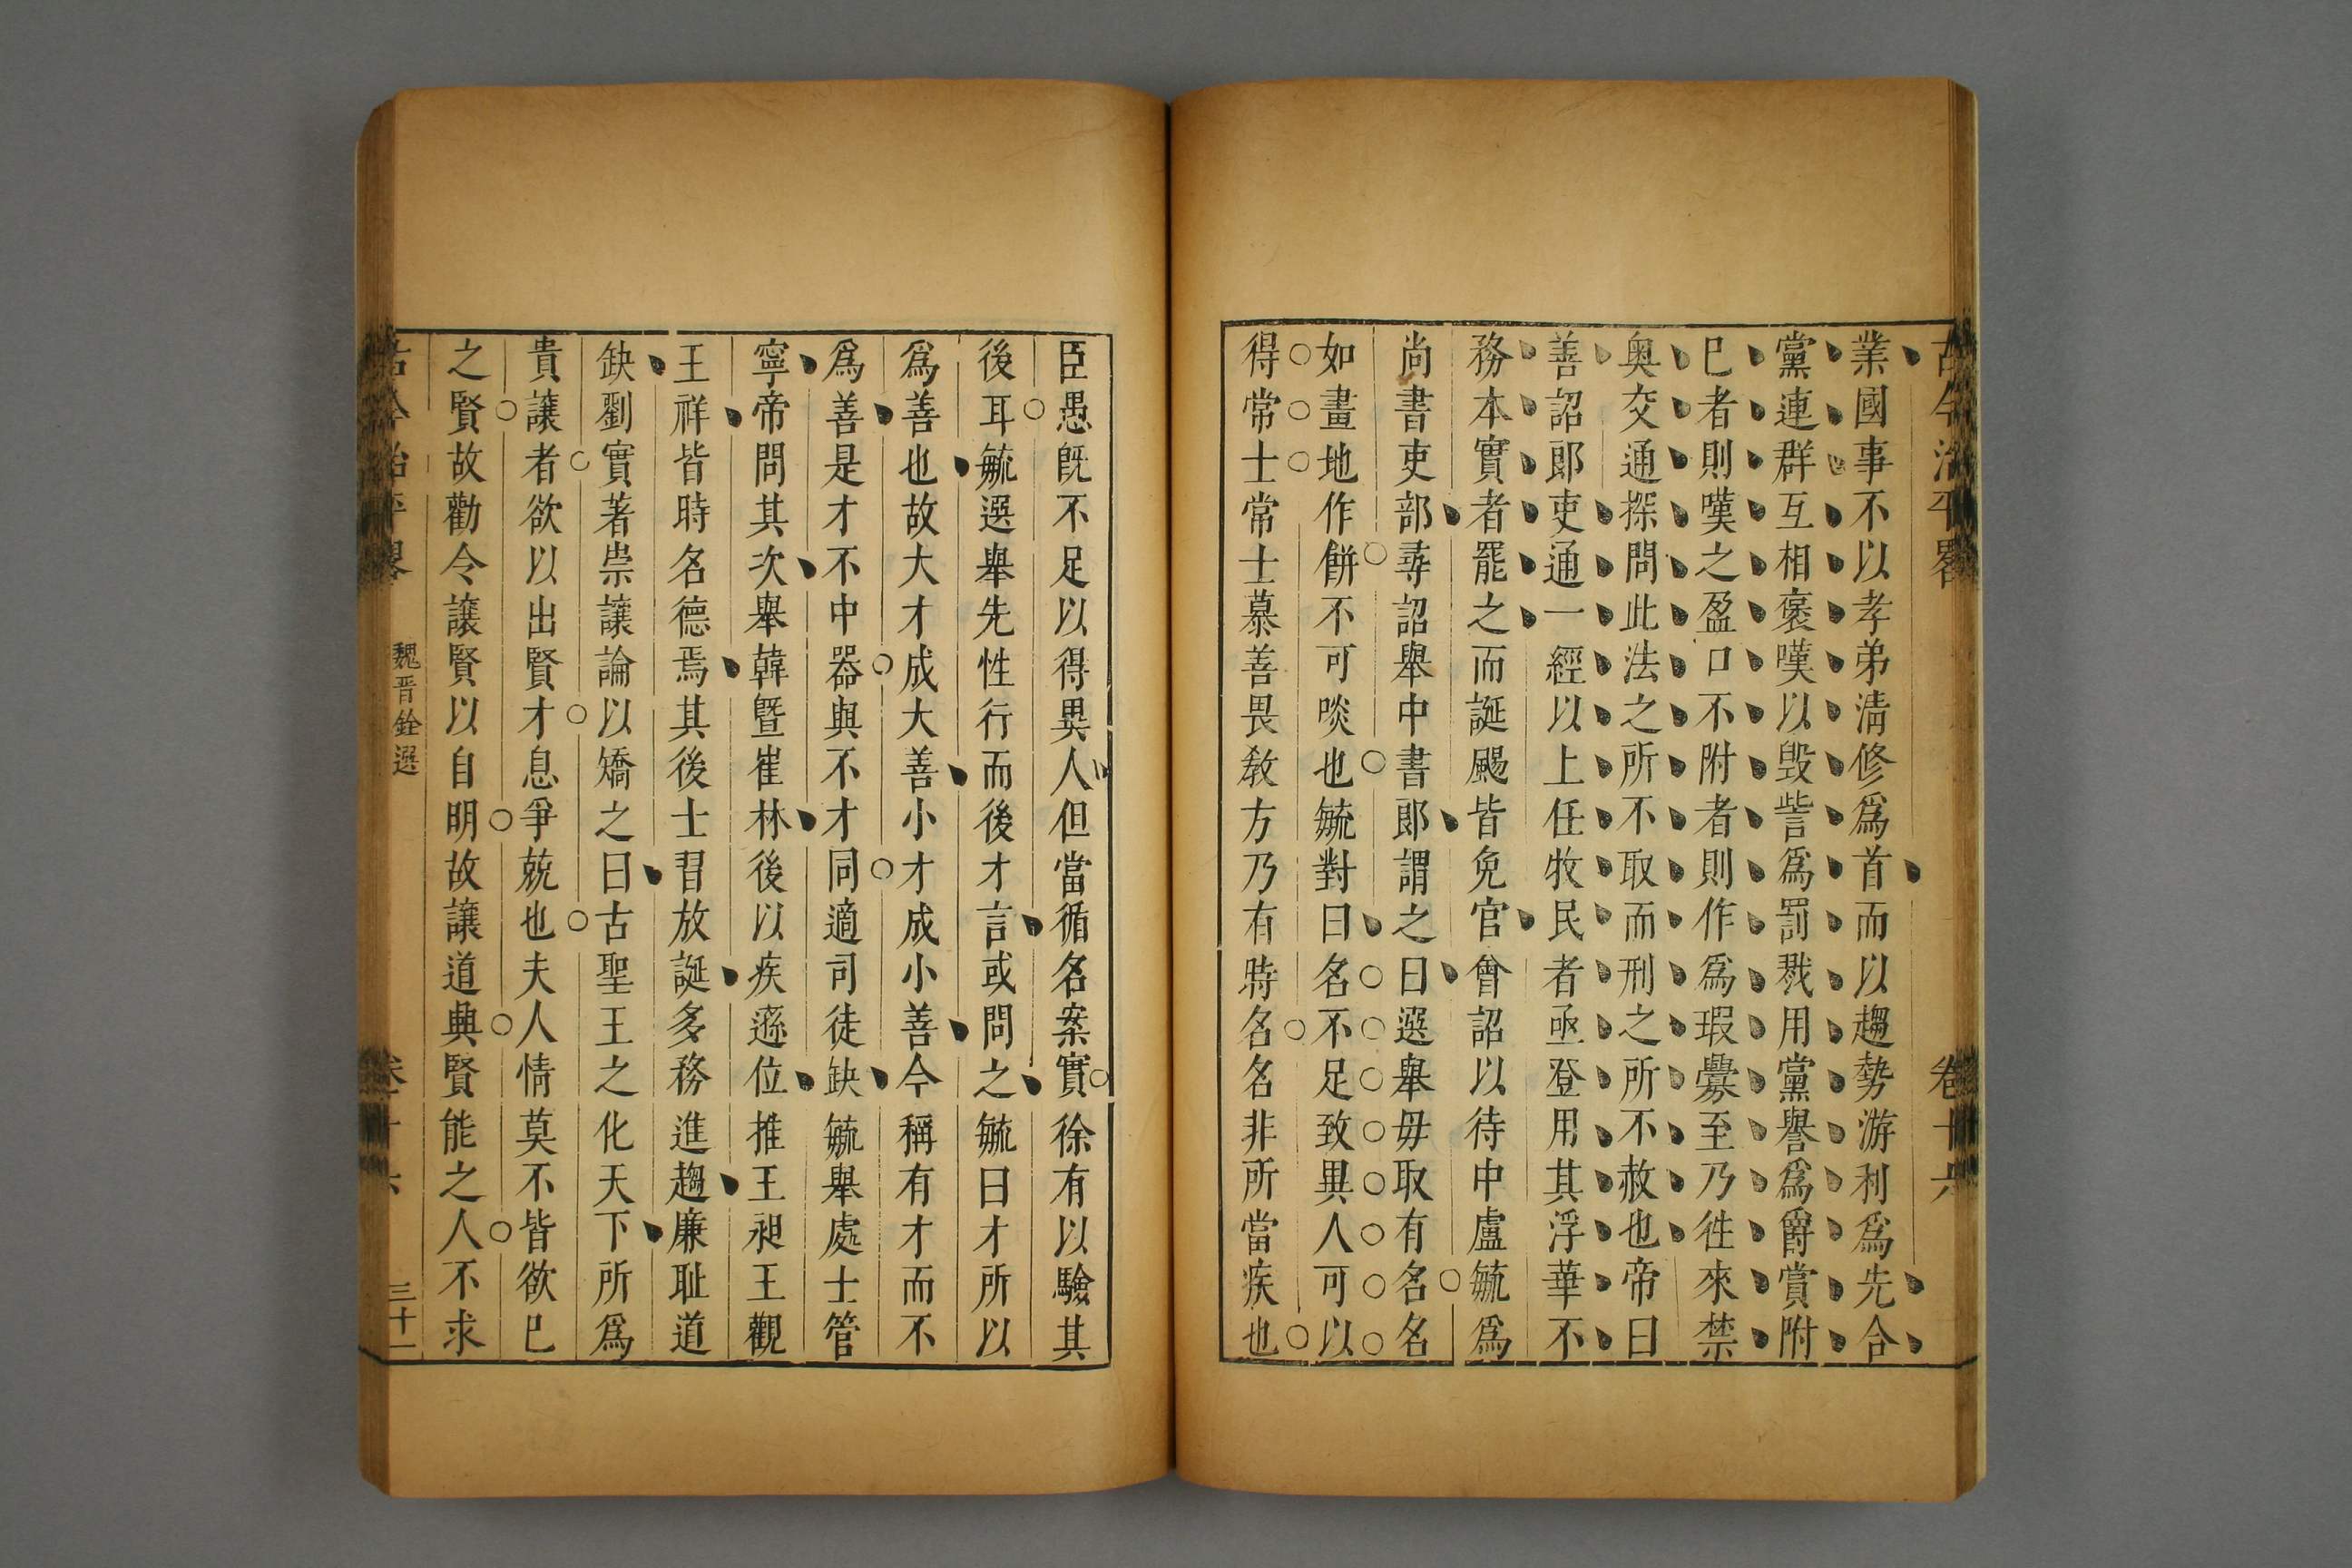 古今治平畧
卷十六
業國事不以孝弟清修爲首而以趨勢游利爲先合
黨連群互相褒嘆以毀訾爲罰戮用黨譽爲爵賞附
巳者則嘆之盈口不附者則作爲瑕釁至乃徃來禁
奥交通探問此法之所不取而刑之所不赦也帝曰
善詔郎吏通一經以上任牧民者亟登用其浮華不
務本實者罷之而誕颺皆免官會詔以待中盧毓爲
尚書吏部尋詔舉中書郎謂之曰選舉毋取有名名
如畫地作餅不可啖也毓對曰名不足致異人可以
得常士常士慕善畏敎方乃有時名名非所當疾也
臣愚旣不足以得異人但當循名案實徐有以驗其
後耳毓選舉先性行而後才言或問之毓曰才所以
爲善也故大才成大善小才成小善今稱有才而不
爲善是才不中器與不才同適司徒缺毓舉處士管
寧帝問其次舉韓曁崔林後以疾遜位推王昶王觀
王祥皆時名德焉其後士習放誕多務進趨廉耻道
缺劉實著崇讓論以矯之曰古聖王之化天下所爲
貴讓者欲以出賢才息爭兢也夫人情莫不皆欲巳
之賢故勸令讓賢以自明故讓道興賢能之人不求
古今治平畧
魏晋銓選
卷十六
三十一